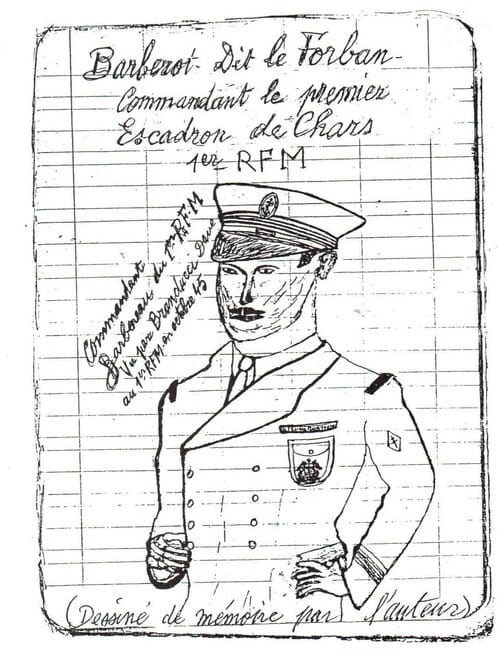 Barberoi. Dit le Forban-
Commandant le premier
Escadron de Chars
1er RFM
Commandant
Barbereau du 1er R.F.M
Vu par Branducci
au 1er RFM en octobre 45
(Dessiné de mémoire par l'auteur)